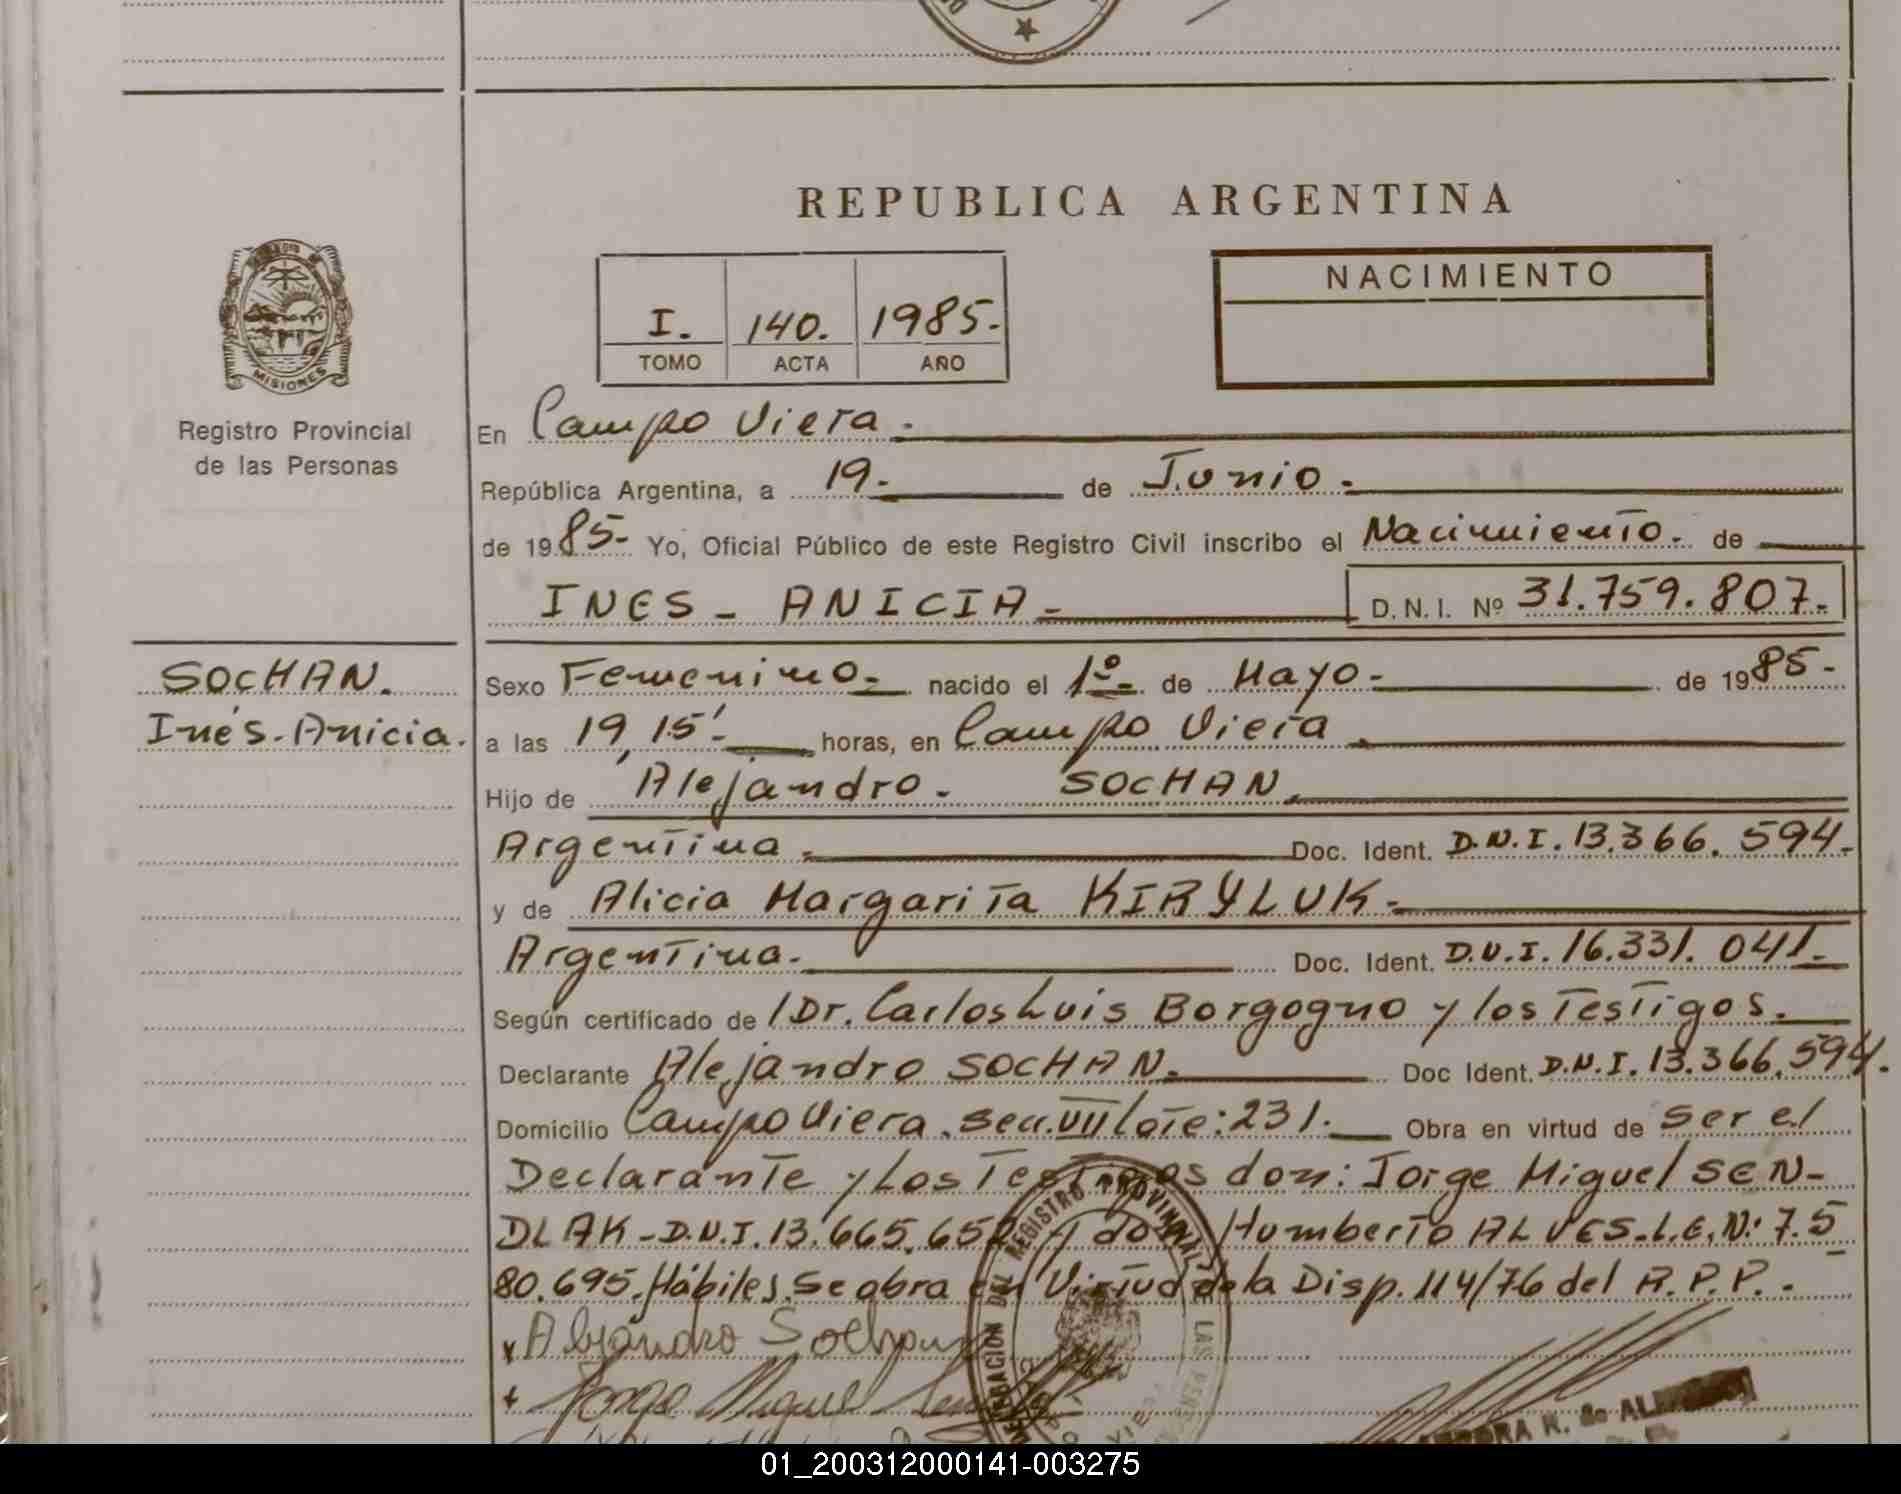 REPUBLICA ARGENTINA
I. 140. 1985.
TOMO ACTA AÑO
NACIMIENTO
MISIONES
Registro Provincial
de las Personas
En Campo Viera.
República Argentina, a 19. de Junio.
de 1985- Yo, Oficial Público de este Registro Civil inscribo el Nacimiento. de
INES - ANICIA - D.N.I. Nº 31.759.807.
SOCHAN.
Inés. Anicia.
Sexo Femenino. nacido el 1º de Mayo - de 1985-
a las 19,15' horas, en Campo Viera
Hijo de Alejandro. SOCHAN.
Argentina. Doc. Ident. D.N.I. 13.366.594.
y de Alicia Margarita KIRYLUK-
Argentina. Doc. Ident. D.N.I. 16.331.041.
Según certificado de /Dr. Carlos Luis Borgogno y los Testigos.
Declarante Alejandro SOCHAN. Doc Ident. D.N.I. 13.366.594.
Domicilio Campo Viera. Secc. VII lote: 231. Obra en virtud de Ser el
Declarante y Los Testigos don: Jorge Miguel SEN-
DLAK - D.N.I. 13.665.652 y don Humberto ALVES. L.E. N: 7.5
80.695. Hábiles. Se obra en Virtud de la Disp. 114/76 del R.P.P.
Alejandro Sochan
Jorge Miguel
DEL REGISTRO PROVINCIAL LAS
01_200312000141-003275